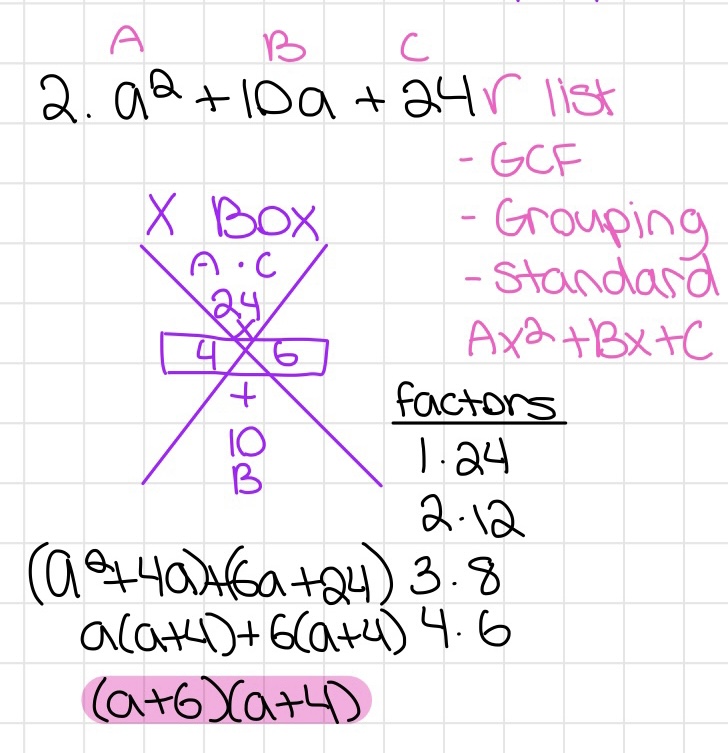 A B C
2. a² + 10a + 24 √ list
- GCF
- Grouping
- Standard
Ax² + Bx + C
X BOX
A · C
24
x
4 6
+
10
B
factors
1 · 24
2 · 12
3 · 8
4 · 6
(a² + 4a) + (6a + 24)
a(a+4) + 6(a+4)
(a+6)(a+4)